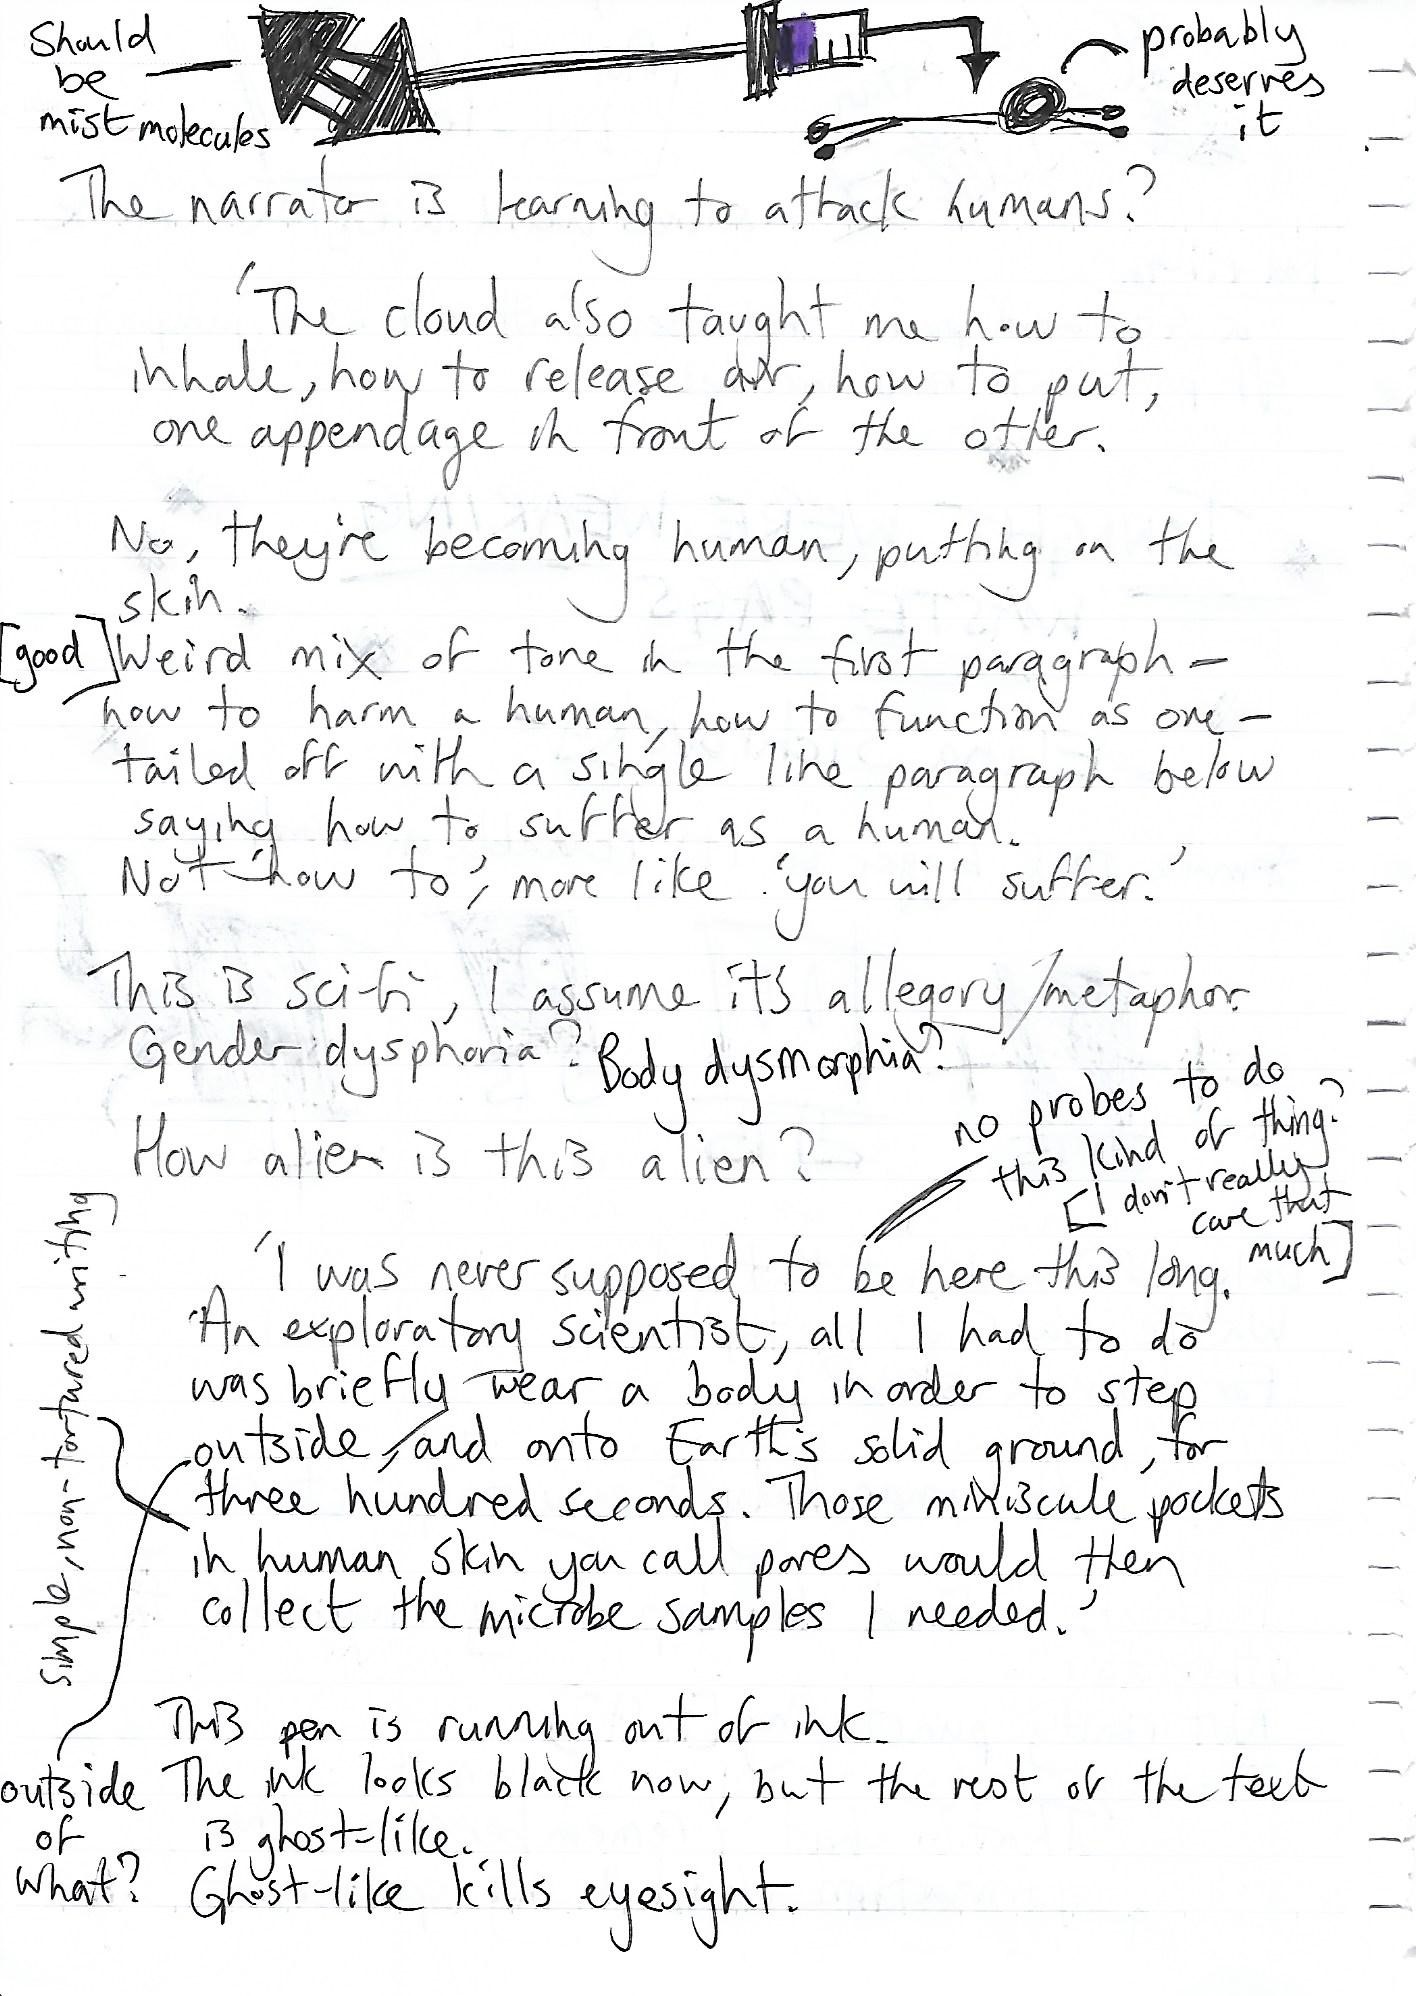 Should
be
mist molecules
probably
deserves
it
The narrator is learning to attack humans?
'The cloud also taught me how to
inhale, how to release air, how to put,
one appendage in front of the other.
No, they're becoming human, putting on the
skin.
[good] Weird mix of tone in the first paragraph –
how to harm a human, how to function as one –
tailed off with a single line paragraph below
saying how to suffer as a human.
Not 'how to', more like 'you will suffer.'
This is sci-fi, I assume it's allegory/metaphor.
Gender dysphoria? Body dysmorphia?
How alien is this alien?
no probes to do
this kind of thing?
[I don't really
care that
much]
'I was never supposed to be here this long.
An exploratory scientist, all I had to do
was briefly wear a body in order to step
outside, and onto Earth's solid ground, for
three hundred seconds. Those miniscule pockets
in human skin you call pores would then
collect the microbe samples I needed.'
simple, non-tortured writing
This pen is running out of ink.
The ink looks black now, but the rest of the text
is ghost-like.
Ghost-like kills eyesight.
outside
of
what?